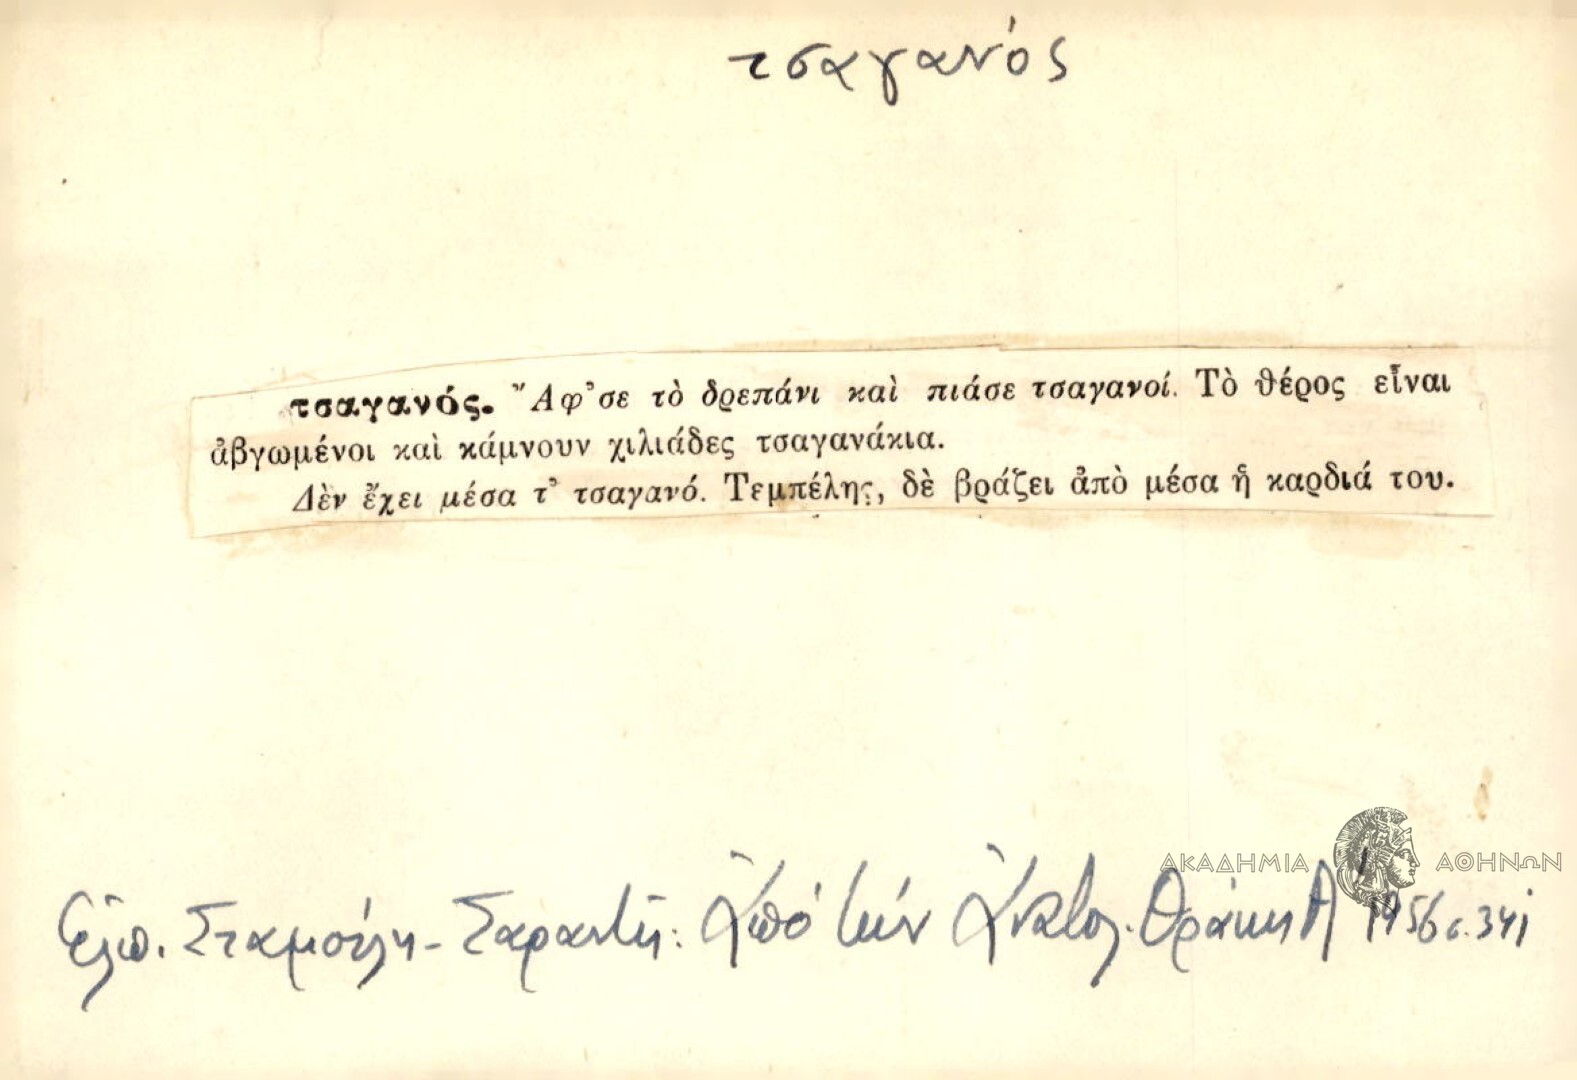 τσαγανός
τσαγανός. Ἄφ'σε τὸ δρεπάνι καὶ πιάσε τσαγανοί. Τὸ θέρος εἶναι
ἀβγωμένοι καὶ κάμνουν χιλιάδες τσαγανάκια.
Δὲν ἔχει μέσα τ' τσαγανό. Τεμπέλης, δὲ βράζει ἀπὸ μέσα ἡ καρδιά του.
ΑΚΑΔΗΜΙΑ ΑΘΗΝΩΝ
Ἐλπ. Σταμούλη - Σαραντῆ: Ἀπὸ τὴν Ἀνατολ. Θράκη Α' 1956 σ. 341